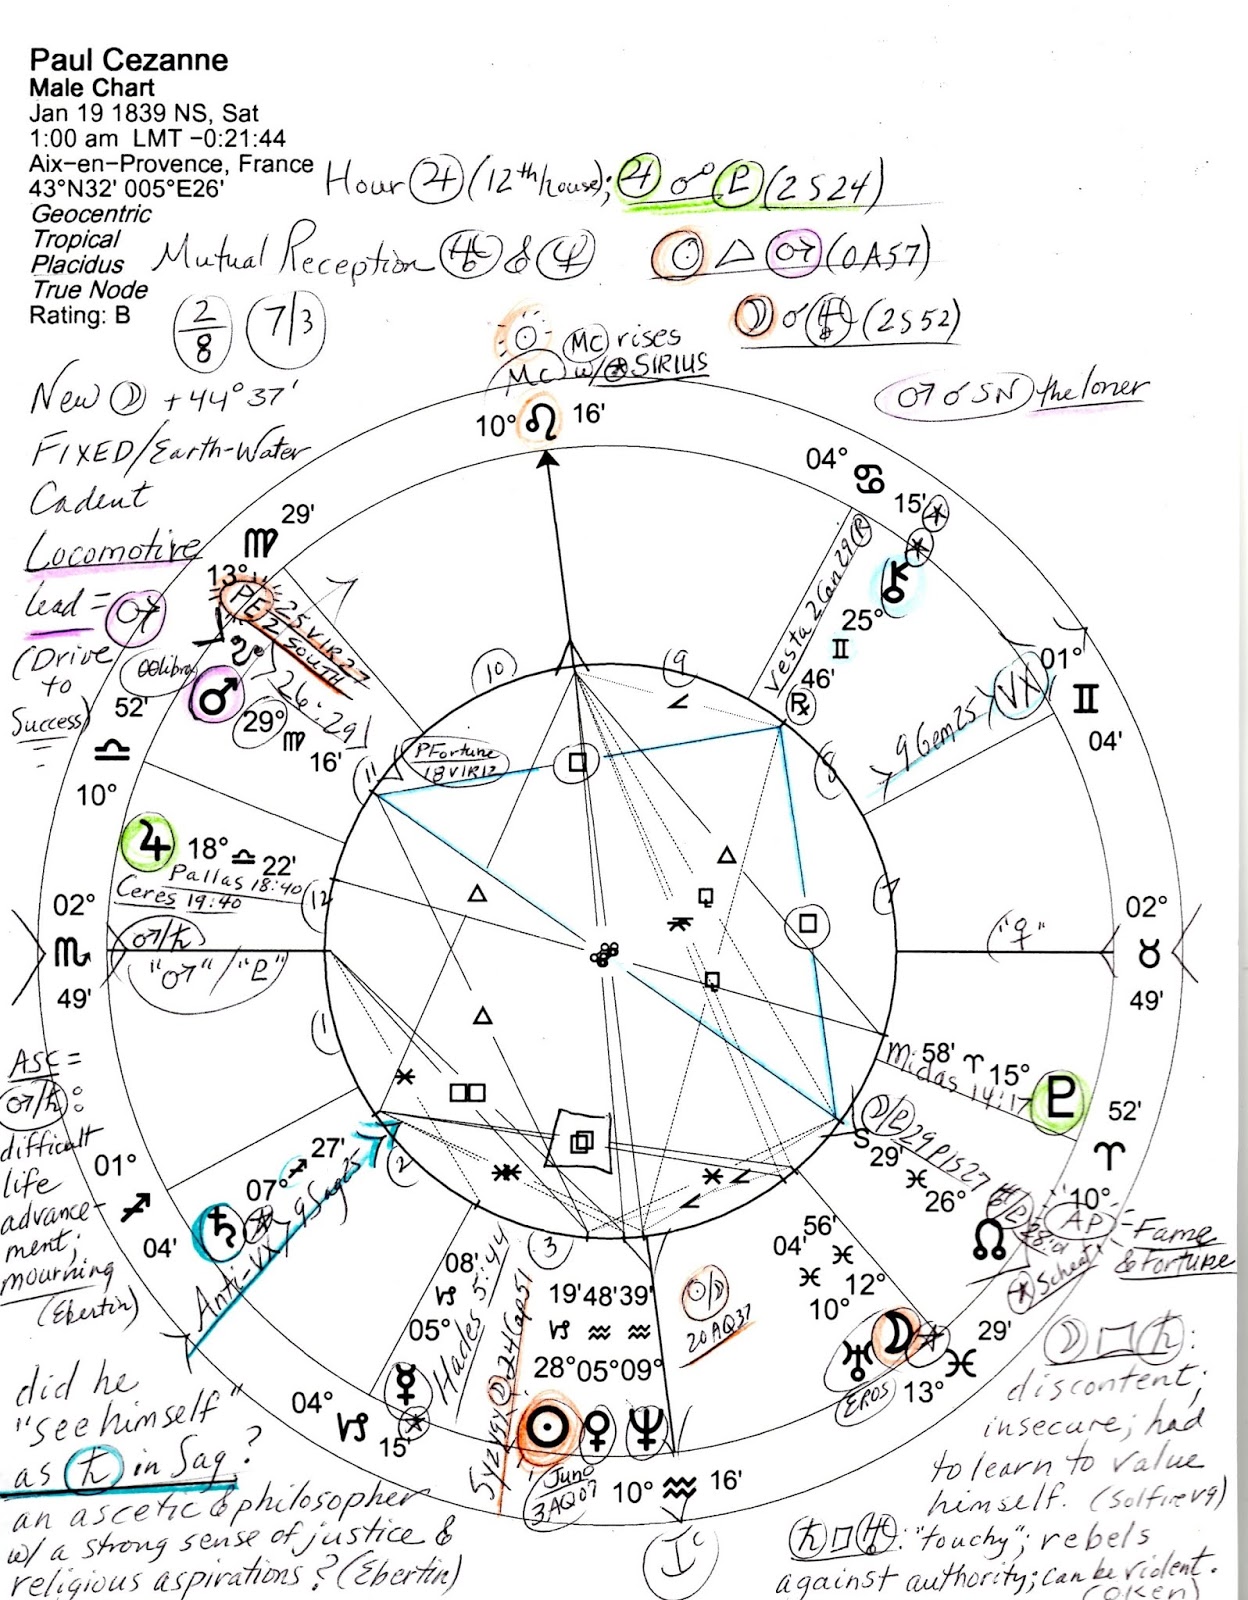 Paul Cezanne
Male Chart
Jan 19 1839 NS, Sat
1:00 am LMT −0:21:44
Aix−en−Provence, France
43°N32' 005°E26'
Geocentric
Tropical
Placidus
True Node
Rating: B
Hour ♃ (12th house); ♃ ☍ ♇ (2S24)
Mutual Reception ♅ & ♆
☉ △ ♂ (0A57)
2/8 7/3
☽ ☌ ♅ (2S52)
☉ MC rises
MC w/ SIRIUS
New ☽ +44°37'
♂ ☌ SN the loner
FIXED/Earth-Water
Cadent
Locomotive
lead = ♂
(Drive
to
Success)
10° ♌ 16'
04° ♋ 15'
29' ♍ 13°
P/E 25 VIR 27
2 SOUTH
26:29
00 libra
♂ 29° ♍ 16'
52' ♎ 10°
PFortune
18 VIR 12
Vesta 2 Can 29 R
25° ♊ 46' ℞
VX 9 Gem 25
01° ♊ 04'
♃ 18° ♎ 22'
Pallas 18:40
Ceres 19:40
02° ♏ 49'
♂/♄
"♂"/"♇"
"♀"
02° ♉ 49'
10 9 8 7
11 12 1 2 3
58' ♈ 15°
Midas 14:17
♇
52' ♈ 10°
☽/♇ 29 PIS 27
S 29' ♓ 26° ☊
♅/♇ 28:01
Scheat
AP - Fame
& Fortune
ASC =
♂/♄:
difficult
life
advance-
ment;
mourning
(Ebertin)
01° ♐ 04'
♄ 07° ♐ 27'
Anti-VX 9 Sag 25
08' ♑ 05° ☿
Hades 5:44
04° ♑ 15'
Syzygy ☽ 24 Cap 51
19' ♑ 28° ☉
48' ♒ 05° ♀
39' ♒ 09° ♆
Juno
3 AQ 07
☉/☽
20 AQ 37
10° ♒ 16'
IC
04' ♓ 10° ♅
56' ♓ 12° ☽
EROS
29' ♓ 13°
☽ □ ♄:
discontent;
insecure; had
to learn to value
himself. (Solfire v9)
♄ □ ♅: "touchy"; rebels
against authority; can be violent.
(OKEN)
did he
"see himself"
as ♄ in Sag?
an ascetic & philosopher
w/ a strong sense of justice &
religious aspirations? (Ebertin)